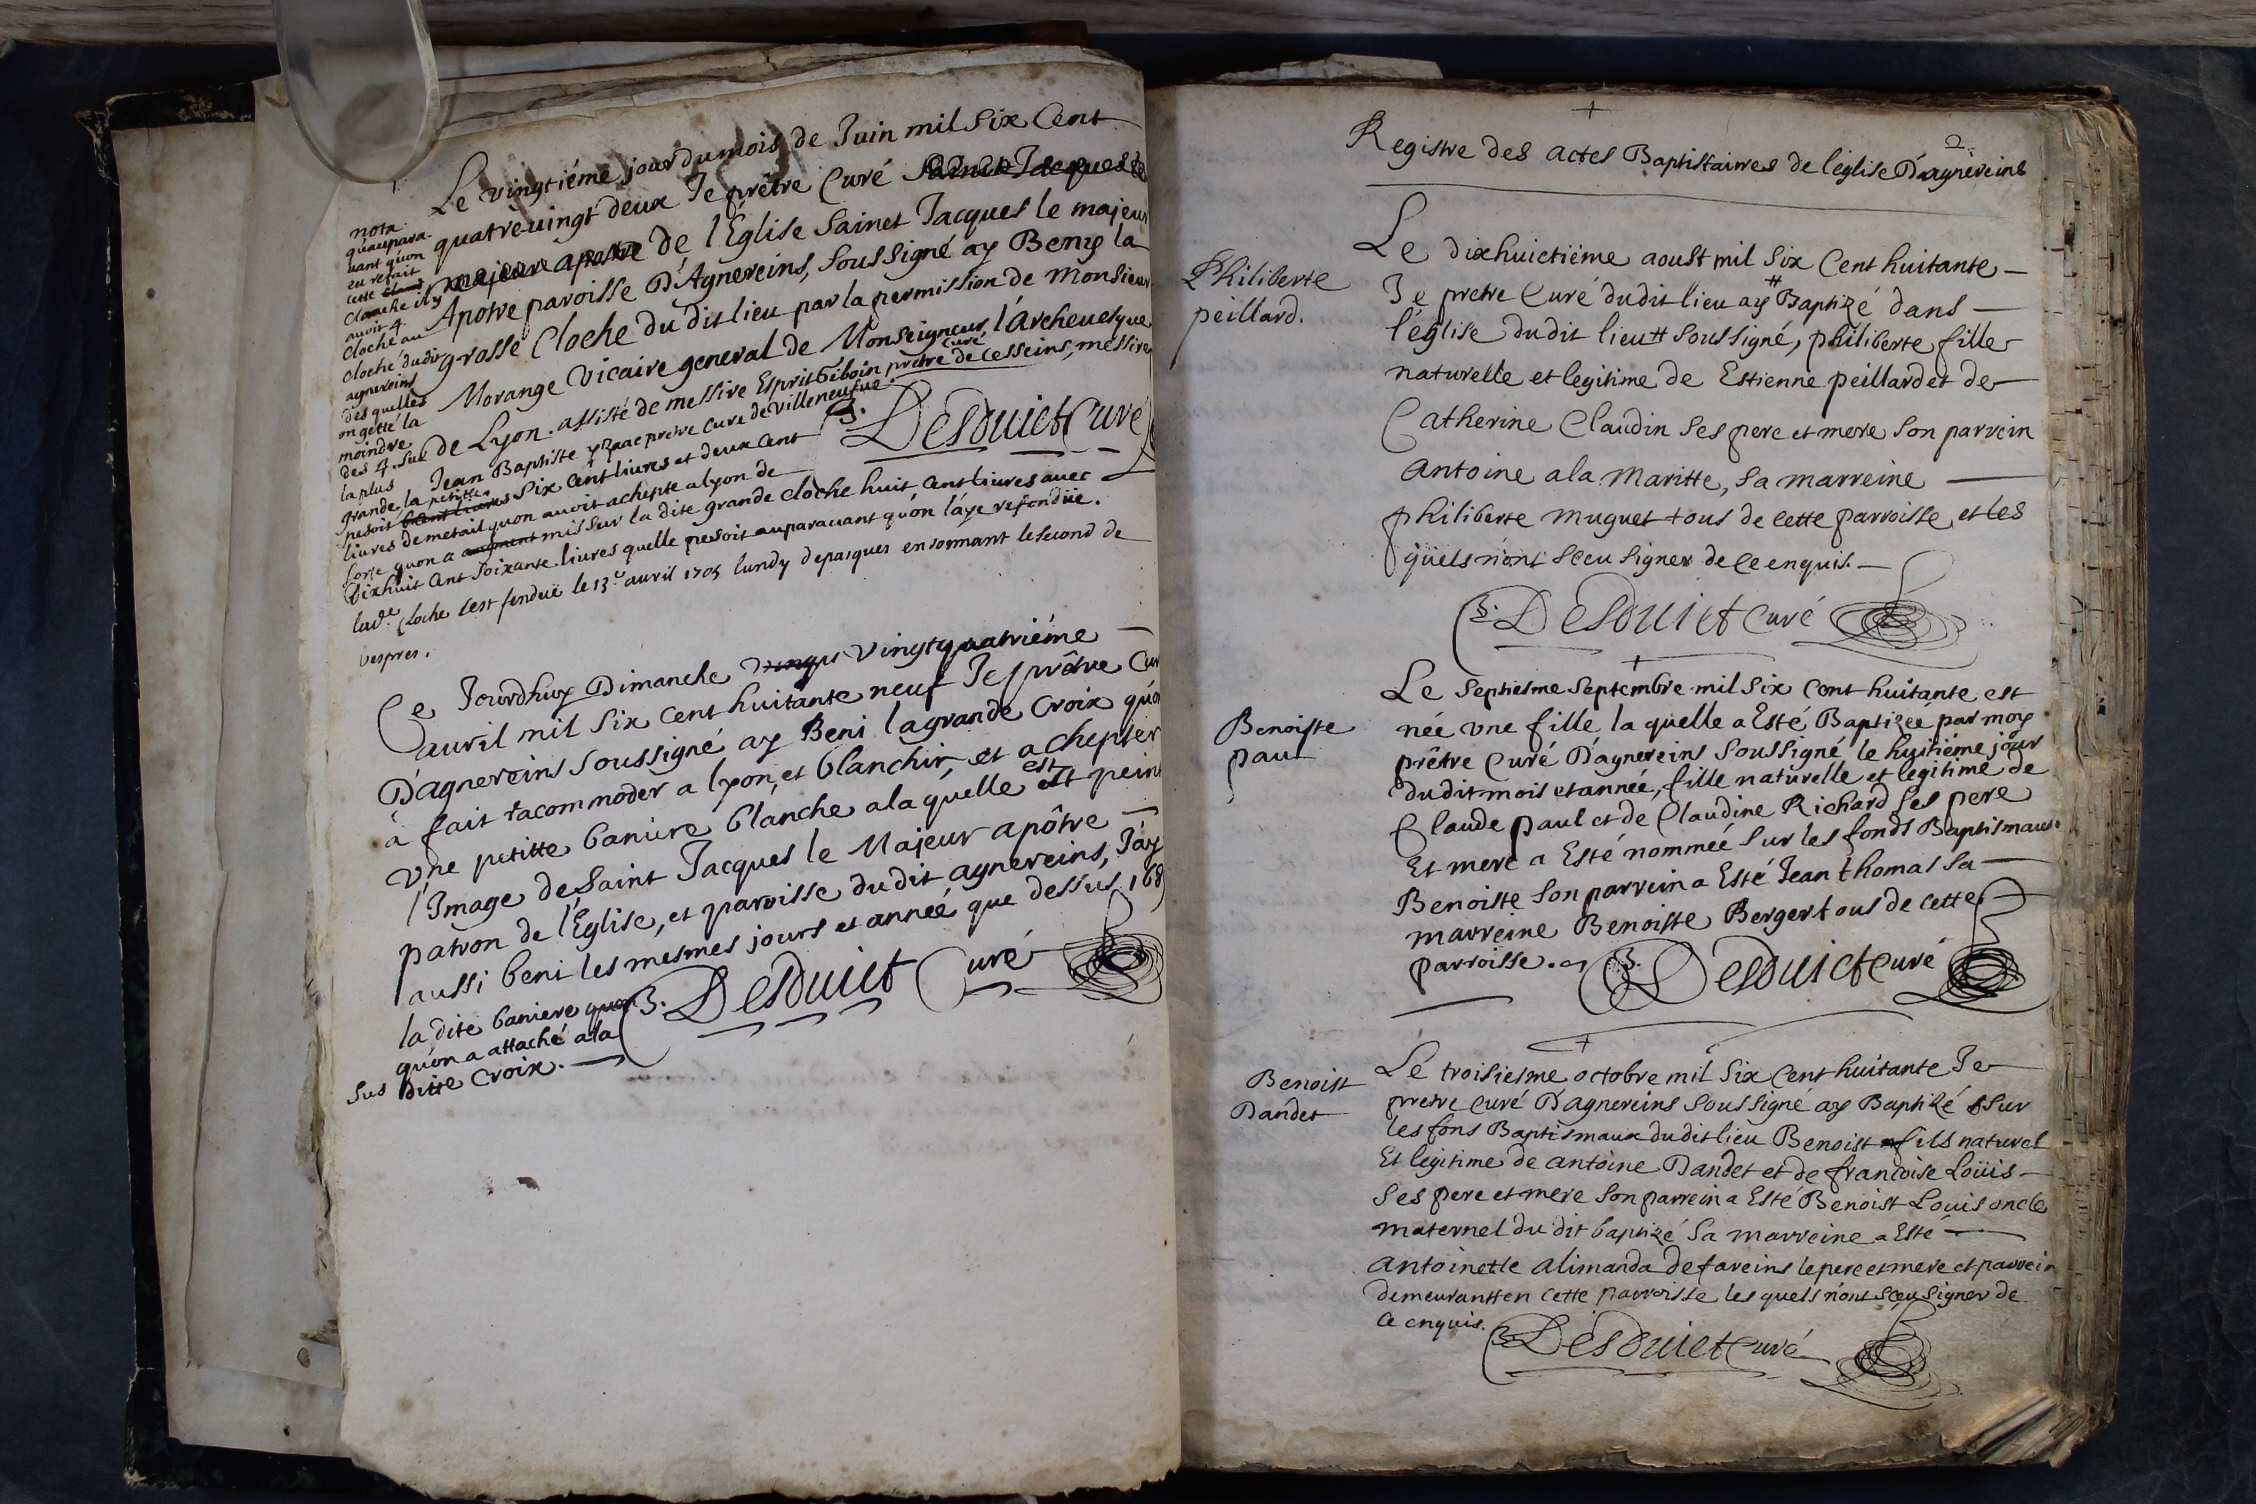 Le vingtiéme jour du mois de Juin mil six Cent
quatrevingt deux Je prêtre Curé
de l'Eglise Sainct Jacques le majeur
Apotre paroisse D'Agnereins, soussigné ay Beny la
grosse Cloche du dit lieu par la permission de Monsieur
Morange Vicaire general de Monseigneur l'Archeuesque
de Lyon. assisté de messire Esprit Giboin prêtre curé de Cesseins, messire
Jean Baptiste prêtre Curé de Villeneufue.
B. Desduict Curé
nota
quaupara-
uant qu'on
eu refait
cette
cloche il y
auoit 4
cloche au
cloché dudit
agnereins
des quelles
on gette la
moindre
des 4. sur
la plus
grande, la petitte
pesoit six Cent liures et deux Cent
liures de metail qu'on auoit achepté a lyon de
sorte quon a mis sur la dite grande cloche huit Cent liures auec
dixhuit Cent soixante liures quelle pesoit auparauant qu'on l'aye refondüe.
lad.e Cloche sest fendüe le 13.e auril 1705 lundy de pasques en sonnant le second de
vespres.
Ce Jourdhuy Dimanche vingtquatriéme
auril mil six cent huitante neuf Je prêtre Cur
D'agnereins soussigné ay Beni la grande Croix qu'on
à fait racommoder a lyon, et blanchir, et achepter
Vne petitte baniere blanche a la quelle est peint
l'Image de Saint Jacques le Majeur apôtre
patron de l'Eglise, et paroisse du dit agnereins, J'ay
aussi beni les mesmes jours et année que dessus 168
la dite baniere
qu'on a attaché a la
sus ditte Croix.
B. Desduict Curé
2
Registre des actes Baptistaires de l'église D'agnereins
Philiberte
peillard.
Le dixhuictiéme aoust mil six Cent huitante
Je pretre Curé dudit lieu ay # Baptizé dans
l'église dudit lieu # soussigné, philiberte fille
naturelle et legitime de Estienne peillard et de
Catherine Claudin ses pere et mere son parrein
antoine a la Maritte, sa marreine
philiberte muguet tous de cette parroisse et les
quels n'ont sceu signer de ce enquis.
B. Desduict Curé
Benoiste
paul
Le septiesme septembre mil six cent huitante est
née vne fille la quelle a Esté Baptizeé par moy
prêtre Curé D'agnereins soussigné le huitiéme jour
du dit mois et année, fille naturelle et legitime de
Claude paul et de Claudine Richard ses pere
Et mere a Esté nommeé sur les fonds Baptismaux
Benoiste son parrein a Esté Jean thomas sa
marreine Benoiste Berger tous de cette
parroisse.
B. Desduict Curé
Benoist
Dandet
Le troisiesme octobre mil six Cent huitante Je
pretre curé D'agnereins soussigné ay Baptizé sur
les fons Baptismaux du dit lieu Benoist fils naturel
Et legitime de antoine Dandet et de francoise Loüis
ses pere et mere son parrein a Esté Benoist Louis oncle
maternel du dit baptizé sa marreine a Esté
antoinette alimanda de fareins le pere et mere et parrein
demeurantt en cette parroisse les quels n'ont sceu signer de
ce enquis.
B. Desduict Curé